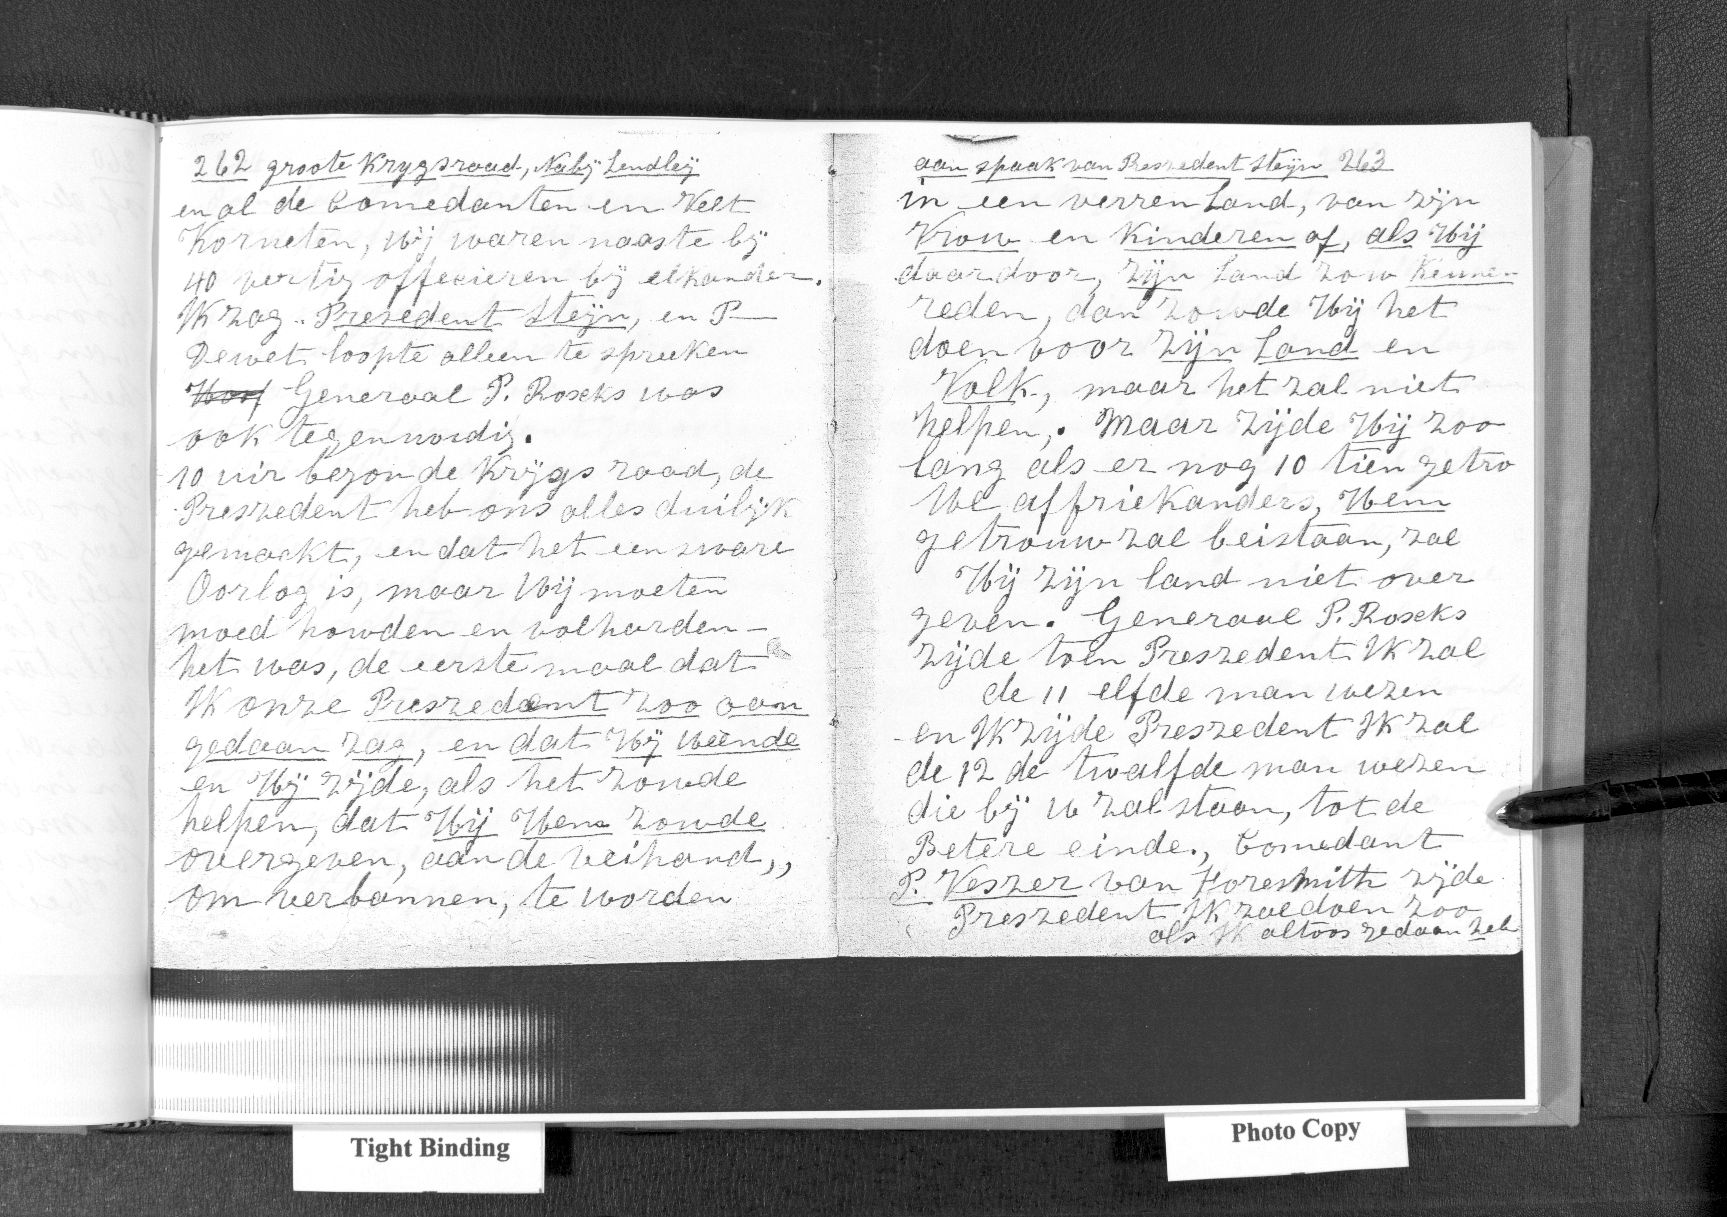 262 groote Krygsraad, Naby Lendley
en al de Comedanten en Velt
Korneten, Wij waren naaste by
40 vertig offecieren by elkander.
Ik zag. Presedent Steyn, en P—
Dewet loopte alleen te spreeken
Generaal P. Roseks was
ook tegenwordig.
10 uir begon de Krygs raad, de
Preszedent heb ons alles duilijk
gemaekt, en dat het een sware
Oorlog is, maar Wij moeten
moed howden en volharden —
het was, de eerste maal dat
Ik onze Preszedemt zoo aan
gedaan zag, en dat Wy weende
en Wij zijde, als het zowde
helpen, dat Wij Wem zowde
overgeven, aan de veihand,,
om verbannen, te worden
aan spaak van Preszedent Steyn 263
in een verren Land, van zyn
Vrow en Kinderen af, als Wij
daardoor, zyn Land zow Kennen
reden, dan zowde Wy het
doen voor zyn Land en
Volk, maar het zal niet
helpen,. Maar zijde Wij zoo
lang als er nog 10 tien getro
We affriekanders, Wem
getrouw zal beistaan, zal
Wij zijn land niet over
geven. Generaal P. Roseks
zijde toen Preszedent Ik zal
de 11 elfde man wezen
en Ik zijde Preszedent Ik zal
de 12 de twalfde man wezen
die bij u zal staan, tot de
Betere einde., Comedant
P. Veszer van Foresmith zijde
Preszedent, Ik zal doen zoo
als Ik altoos gedaan heb
Tight Binding
Photo Copy